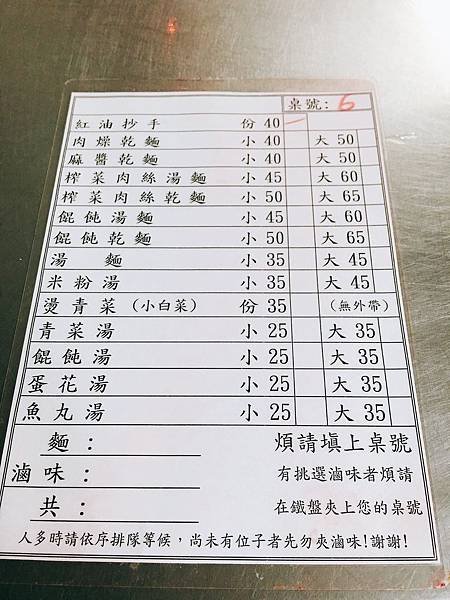 桌號: 6
紅油抄手 份 40
肉燥乾麵 小 40 大 50
麻醬乾麵 小 40 大 50
榨菜肉絲湯麵 小 45 大 60
榨菜肉絲乾麵 小 50 大 65
餛飩湯麵 小 45 大 60
餛飩乾麵 小 50 大 65
湯麵 小 35 大 45
米粉湯 小 35 大 45
燙青菜(小白菜) 份 35 (無外帶)
青菜湯 小 25 大 35
餛飩湯 小 25 大 35
蛋花湯 小 25 大 35
魚丸湯 小 25 大 35
麵： 煩請填上桌號
滷味： 有挑選滷味者煩請
共： 在鐵盤夾上您的桌號
人多時請依序排隊等候，尚未有位子者先勿夾滷味!謝謝!